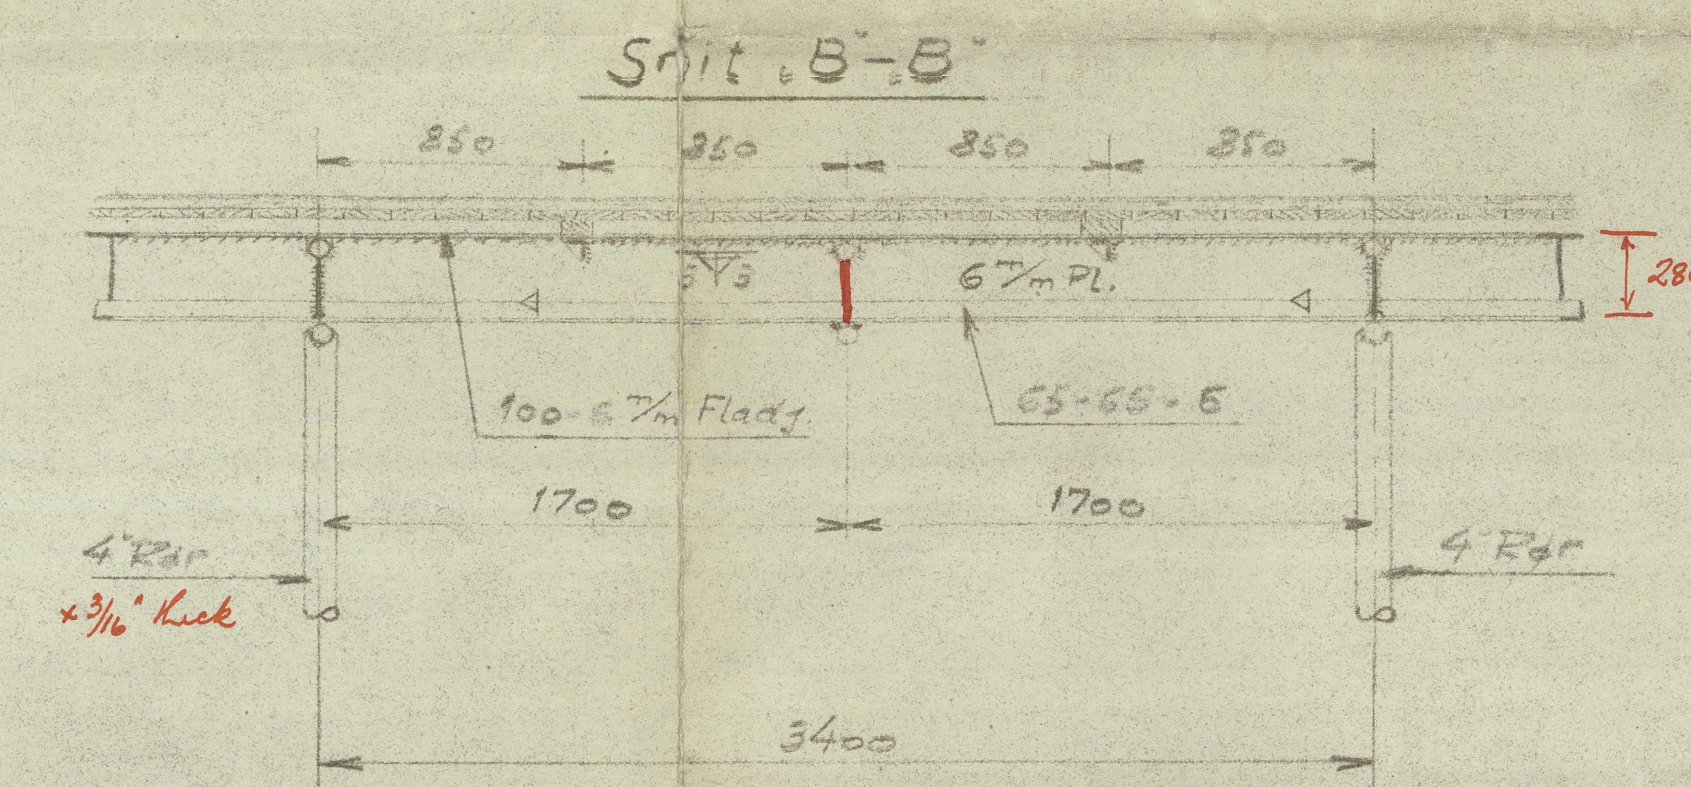 Snit „B"-„B"
850 850 850 850
3 3
6 m/m Pl.
280
100-6 m/m Fladj.
65-65-6
1700 1700
4" Rør
x 3/16" thick
4" Rør
3400